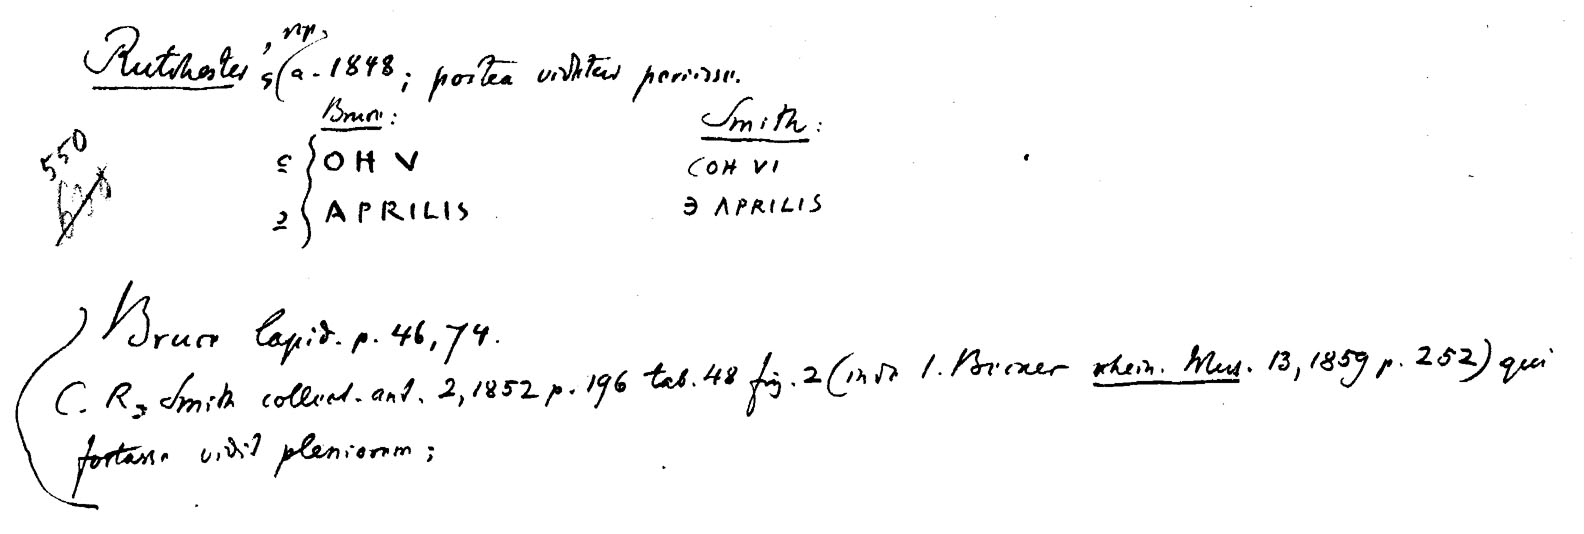 Rutchester, rep. a. 1848; postea videtur periisse.
Bruce: Smith:
550
c OH V COH VI
Ɔ APRILIS Ɔ APRILIS
Bruce lapid. p. 46, 74.
C. R. Smith collect. ant. 2, 1852 p. 196 tab. 48 fig. 2 (inde I. Becker rhein. Mus. 13, 1859 p. 252) qui
fortasse vidit pleniorem;